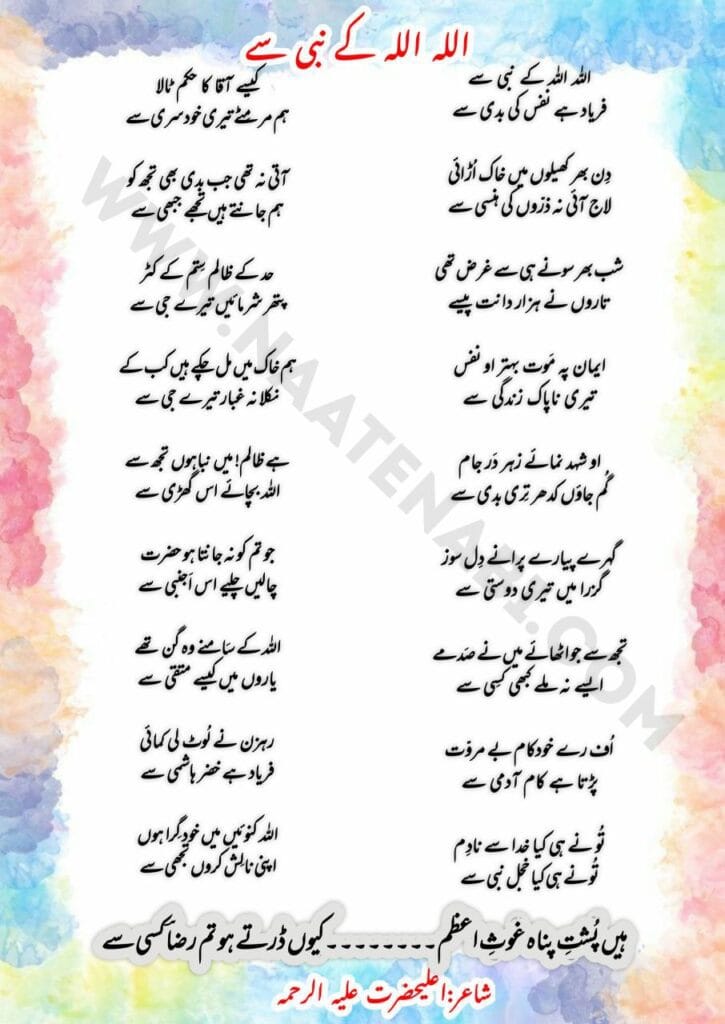 اللہ اللہ کے نبی سے
اللہ اللہ کے نبی سے
فریاد ہے نفس کی بدی سے
دِن بھر کھیلوں میں خاک اُڑائی
لاج آئی نہ ذرّوں کی ہنسی سے
شب بھر سونے ہی سے غرض تھی
تاروں نے ہزار دانت پیسے
ایمان پہ مَوت بہتر او نفس
تیری ناپاک زندگی سے
او شہد نمائے زہر دَر جام
گُم جاؤں کدھر تِری بدی سے
گہرے پیارے پرانے دِل سوز
گزرا میں تیری دوستی سے
تجھ سے جو اٹھائے میں نے صَدمے
ایسے نہ ملے کبھی کِسی سے
اُف رے خودکام بے مروّت
پڑتا ہے کام آدمی سے
تُو نے ہی کیا خدا سے نادِم
تُو نے ہی کیا خجل نبی سے
کیسے آقا کا حکم ٹالا
ہم مر مٹے تیری خود سری سے
آتی نہ تھی جب بدی بھی تجھ کو
ہم جانتے ہیں تجھے جبھی سے
حد کے ظالم سِتم کے کٹّر
پتھر شرمائیں تیرے جی سے
ہم خاک میں مل چکے ہیں کب کے
نکلا نہ غبار تیرے جی سے
ہے ظالم! میں نباہوں تجھ سے
اللہ بچائے اس گھڑی سے
جو تم کو نہ جانتا ہو حضرت
چالیں چلیے اس اَجنبی سے
اللہ کے سَامنے وہ گن تھے
یاروں میں کیسے متقی سے
رہزن نے لُوٹ لی کمائی
فریاد ہے خضر ہاشمی سے
اللہ کنوئیں میں خود گِرا ہوں
اپنی نالِش کروں تجھی سے
ہیں پُشتِ پناہ غوثِ اعظم--------کیوں ڈرتے ہو تم رضاؔ کسی سے
شاعر:اعلیحضرت علیہ الرحمہ
WWW.NAATENABI.COM